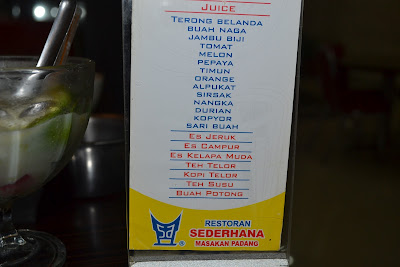 JUICE
TERONG BELANDA
BUAH NAGA
JAMBU BIJI
TOMAT
MELON
PEPAYA
TIMUN
ORANGE
ALPUKAT
SIRSAK
NANGKA
DURIAN
KOPYOR
SARI BUAH
ES JERUK
ES CAMPUR
ES KELAPA MUDA
TEH TELOR
KOPI TELOR
TEH SUSU
BUAH POTONG
RESTORAN
SEDERHANA
MASAKAN PADANG